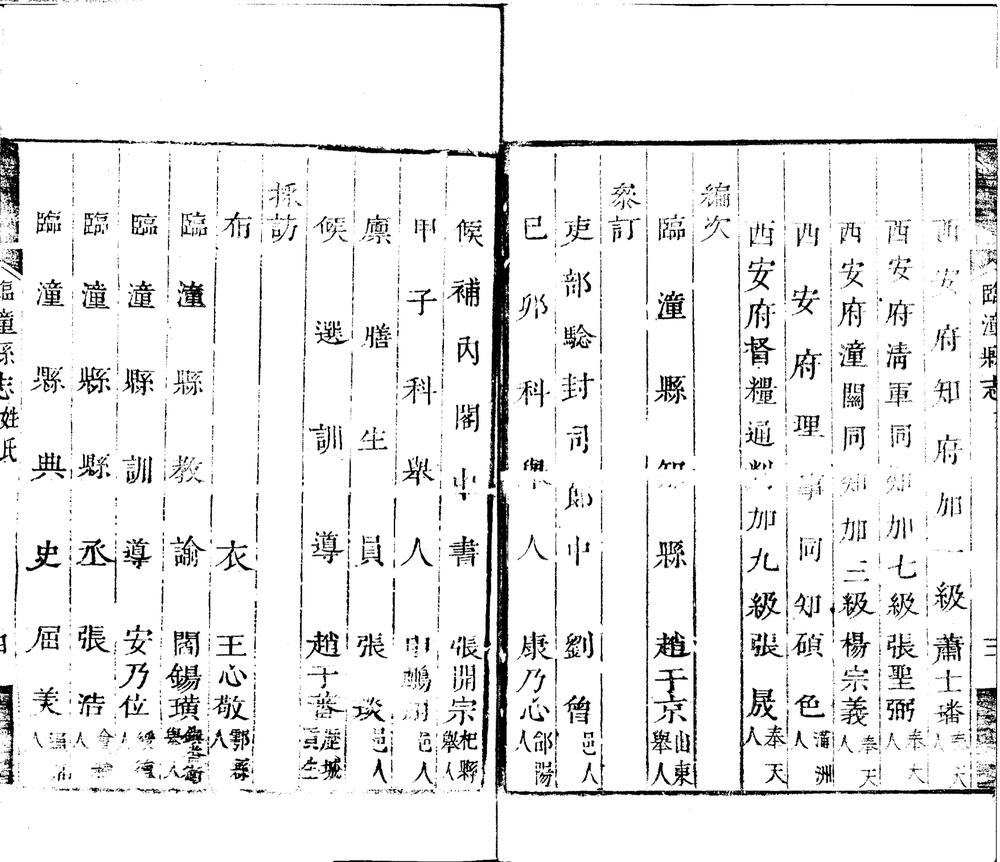 臨潼縣志
三
西安府知府加一級蕭士璠奉天人
西安府清軍同知加七級張聖弼奉天人
西安府潼關同知加二級楊宗義奉天人
西安府理事同知碩色滿洲人
西安府督糧通判加九級張晟奉天人
編次
臨潼縣知縣趙于京山東舉人
叅訂
吏部驗封司郎中劉僧邑人
己卯科舉人康乃心郃陽人
候補內閣中書張開宗杞縣舉人
甲子科舉人申鵬翔邑人
廩膳生員張琰邑人
候選訓導趙于蕃歷城貢生
採訪
布衣王心敬鄠縣人
臨潼縣教諭閻錫璜舉人
臨潼縣訓導安乃位綏德人
臨潼縣縣丞張浩人
臨潼縣典史屈美人
臨潼縣志姓氏
四